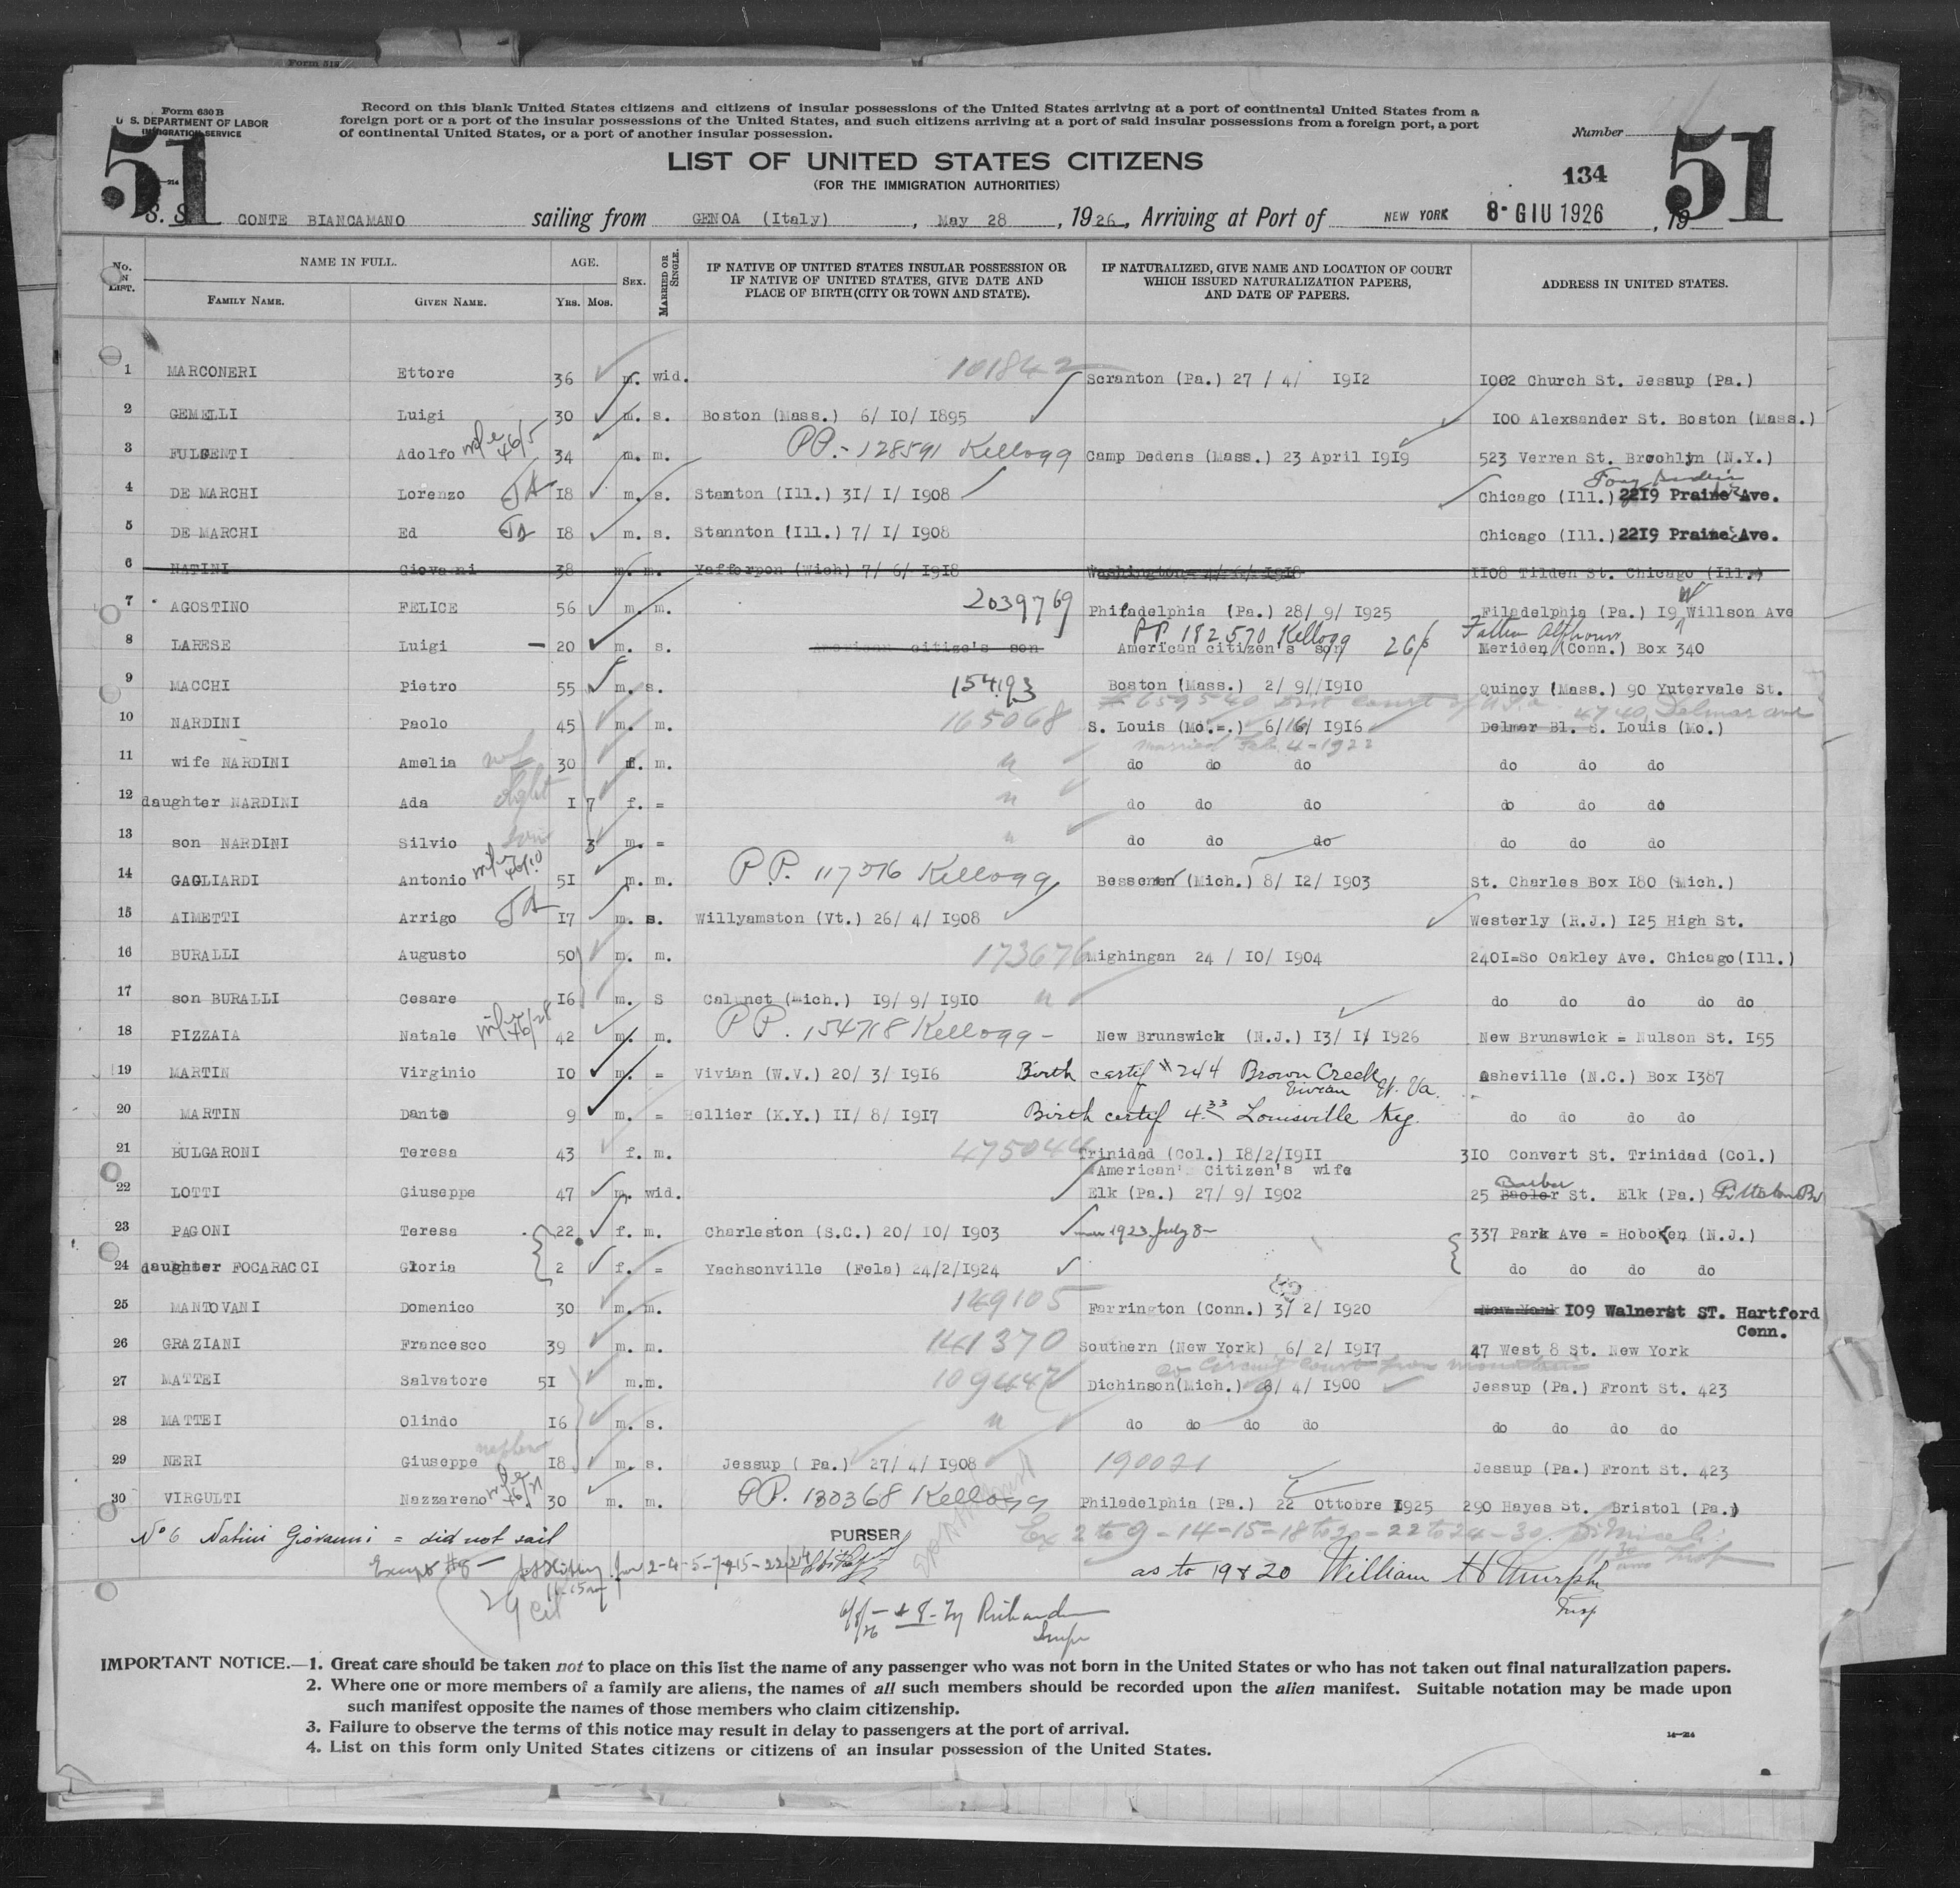 Form 519
Form 630 B
U. S. DEPARTMENT OF LABOR
IMMIGRATION SERVICE
Record on this blank United States citizens and citizens of insular possessions of the United States arriving at a port of continental United States from a
foreign port or a port of the insular possessions of the United States, and such citizens arriving at a port of said insular possessions from a foreign port, a port
of continental United States, or a port of another insular possession.
Number
51
51
LIST OF UNITED STATES CITIZENS
(FOR THE IMMIGRATION AUTHORITIES)
134
S. S. CONTE BIANCAMANO sailing from GENOA (Italy), May 28, 1926, Arriving at Port of NEW YORK 8 - GIU 1926, 19
No. IN LIST. NAME IN FULL. AGE. SEX. MARRIED OR SINGLE. IF NATIVE OF UNITED STATES INSULAR POSSESSION OR IF NATIVE OF UNITED STATES, GIVE DATE AND PLACE OF BIRTH (CITY OR TOWN AND STATE). IF NATURALIZED, GIVE NAME AND LOCATION OF COURT WHICH ISSUED NATURALIZATION PAPERS, AND DATE OF PAPERS. ADDRESS IN UNITED STATES.
FAMILY NAME. GIVEN NAME. YRS. MOS.
1 MARCONERI Ettore 36 m. wid. 101842 Scranton (Pa.) 27 / 4/ I9I2 I002 Church St. Jessup (Pa.)
2 GEMELLI Luigi 30 m. s. Boston (Mass.) 6/ IO/ I895 I00 Alexsander St. Boston (Mass.)
3 FULGENTI Adolfo 46/5 34 m. m. PP.- 128591 Kellogg Camp Dedens (Mass.) 23 April I9I9 523 Verren St. Brooklyn (N.Y.)
4 DE MARCHI Lorenzo I8 m. s. Stanton (Ill.) 3I/ I/ I908 Chicago (Ill.) 22I9 Praine Ave.
5 DE MARCHI Ed I8 m. s. Stannton (Ill.) 7/ I/ I908 Chicago (Ill.) 22I9 Praine Ave.
6 NATINI Giovanni 38 m. m. Yafforpon (Wich) 7/ 6/ I9I8 Washington 4/ 6/ I9I8 II08 Tilden St. Chicago (Ill.)
7 AGOSTINO FELICE 56 m. m. 2039769 Philadelphia (Pa.) 28/ 9/ I925 Filadelphia (Pa.) I9 W Willson Ave
8 LARESE Luigi - 20 m. s. American citize's son PP. 182570 Kellogg American citizen's son Father Alphonse Meriden (Conn.) Box 340
9 MACCHI Pietro 55 m. s. 154193 Boston (Mass.) 2/ 9/ I9I0 Quincy (Mass.) 90 Yutervale St.
10 NARDINI Paolo 45 m. m. 165068 # 659540 Dist Court of U.S.A. S. Louis (Mo.=.) 6/I6/ I9I6 4740 Delmar ave Delmar Bl. S. Louis (Mo.)
11 wife NARDINI Amelia wf 30 f. m. " married Feb. 4-1922 do do do do do do
12 daughter NARDINI Ada dght I 7 f. = " do do do do do do
13 son NARDINI Silvio son 3 m. = " do do do do do do
14 GAGLIARDI Antonio 46/10 5I m. m. P.P. 117576 Kellogg Bessemen (Mich.) 8/ I2/ I903 St. Charles Box I80 (Mich.)
15 AIMETTI Arrigo I7 m. s. Willyamston (Vt.) 26/ 4/ I908 Westerly (R.J.) I25 High St.
16 BURALLI Augusto 50 m. m. 173676 Mighingan 24 / IO/ I904 240I=So Oakley Ave. Chicago(Ill.)
17 son BURALLI Cesare I6 m. S Calunet (Mich.) I9/ 9/ I9I0 " do do do do do
18 PIZZAIA Natale 46/28 42 m. m. PP. 154718 Kellogg - New Brunswick (N.J.) I3/ I/ I926 New Brunswick = Nulson St. I55
19 MARTIN Virginio IO m. = Vivian (W.V.) 20/ 3/ I9I6 Birth certif #244 Brown Creek Vivian W. Va. Asheville (N.C.) Box I387
20 MARTIN Dante 9 m. = Hellier (K.Y.) II/ 8/ I9I7 Birth certif 433 Louisville Ky. do do do do
21 BULGARONI Teresa 43 f. m. 475044 Trinidad (Col.) I8/2/I9II American' Citizen's wife 3IO Convert St. Trinidad (Col.)
22 LOTTI Giuseppe 47 m. wid. Elk (Pa.) 27/ 9/ I902 25 Barber St. Elk (Pa.) Pittston Pa
23 PAGONI Teresa 22 f. m. Charleston (S.C.) 20/ IO/ I903 1923 July 8- 337 Park Ave = Hoboken (N.J.)
24 daughter FOCARACCI Gloria 2 f. = Yachsonville (Fela) 24/2/I924 do do do do
25 MANTOVANI Domenico 30 m. m. 149105 Farrington (Conn.) 3/ 2/ I920 New York I09 Walnerst ST. Hartford Conn.
26 GRAZIANI Francesco 39 m. m. 141370 Southern (New York) 6/ 2/ I9I7 47 West 8 St. New York
27 MATTEI Salvatore 5I m.m. 109447 Circuit Court Dichinson(Mich.) 8/ 4/ I900 Jessup (Pa.) Front St. 423
28 MATTEI Olindo I6 m. s. " do do do do do do do do
29 NERI Giuseppe nephew I8 m. s. Jessup ( Pa.) 27/ 4/ I908 190021 Jessup (Pa.) Front St. 423
30 VIRGULTI Nazzareno 30 m. m. PP. 130368 Kellogg Philadelphia (Pa.) 22 Ottobre I925 290 Hayes St. Bristol (Pa.)
No 6 Natini Giovanni = did not sail PURSER Ex 2 to 9 - 14-15-18 to 20 - 22 to 24 - 30
Except #8 - for 2-4-5-7-
as to 19 & 20 William H Murphy
Insp
29 cit
6/8/26 - #8 - Richards
Insp
IMPORTANT NOTICE.—1. Great care should be taken not to place on this list the name of any passenger who was not born in the United States or who has not taken out final naturalization papers.
2. Where one or more members of a family are aliens, the names of all such members should be recorded upon the alien manifest. Suitable notation may be made upon
such manifest opposite the names of those members who claim citizenship.
3. Failure to observe the terms of this notice may result in delay to passengers at the port of arrival.
4. List on this form only United States citizens or citizens of an insular possession of the United States.
14—214